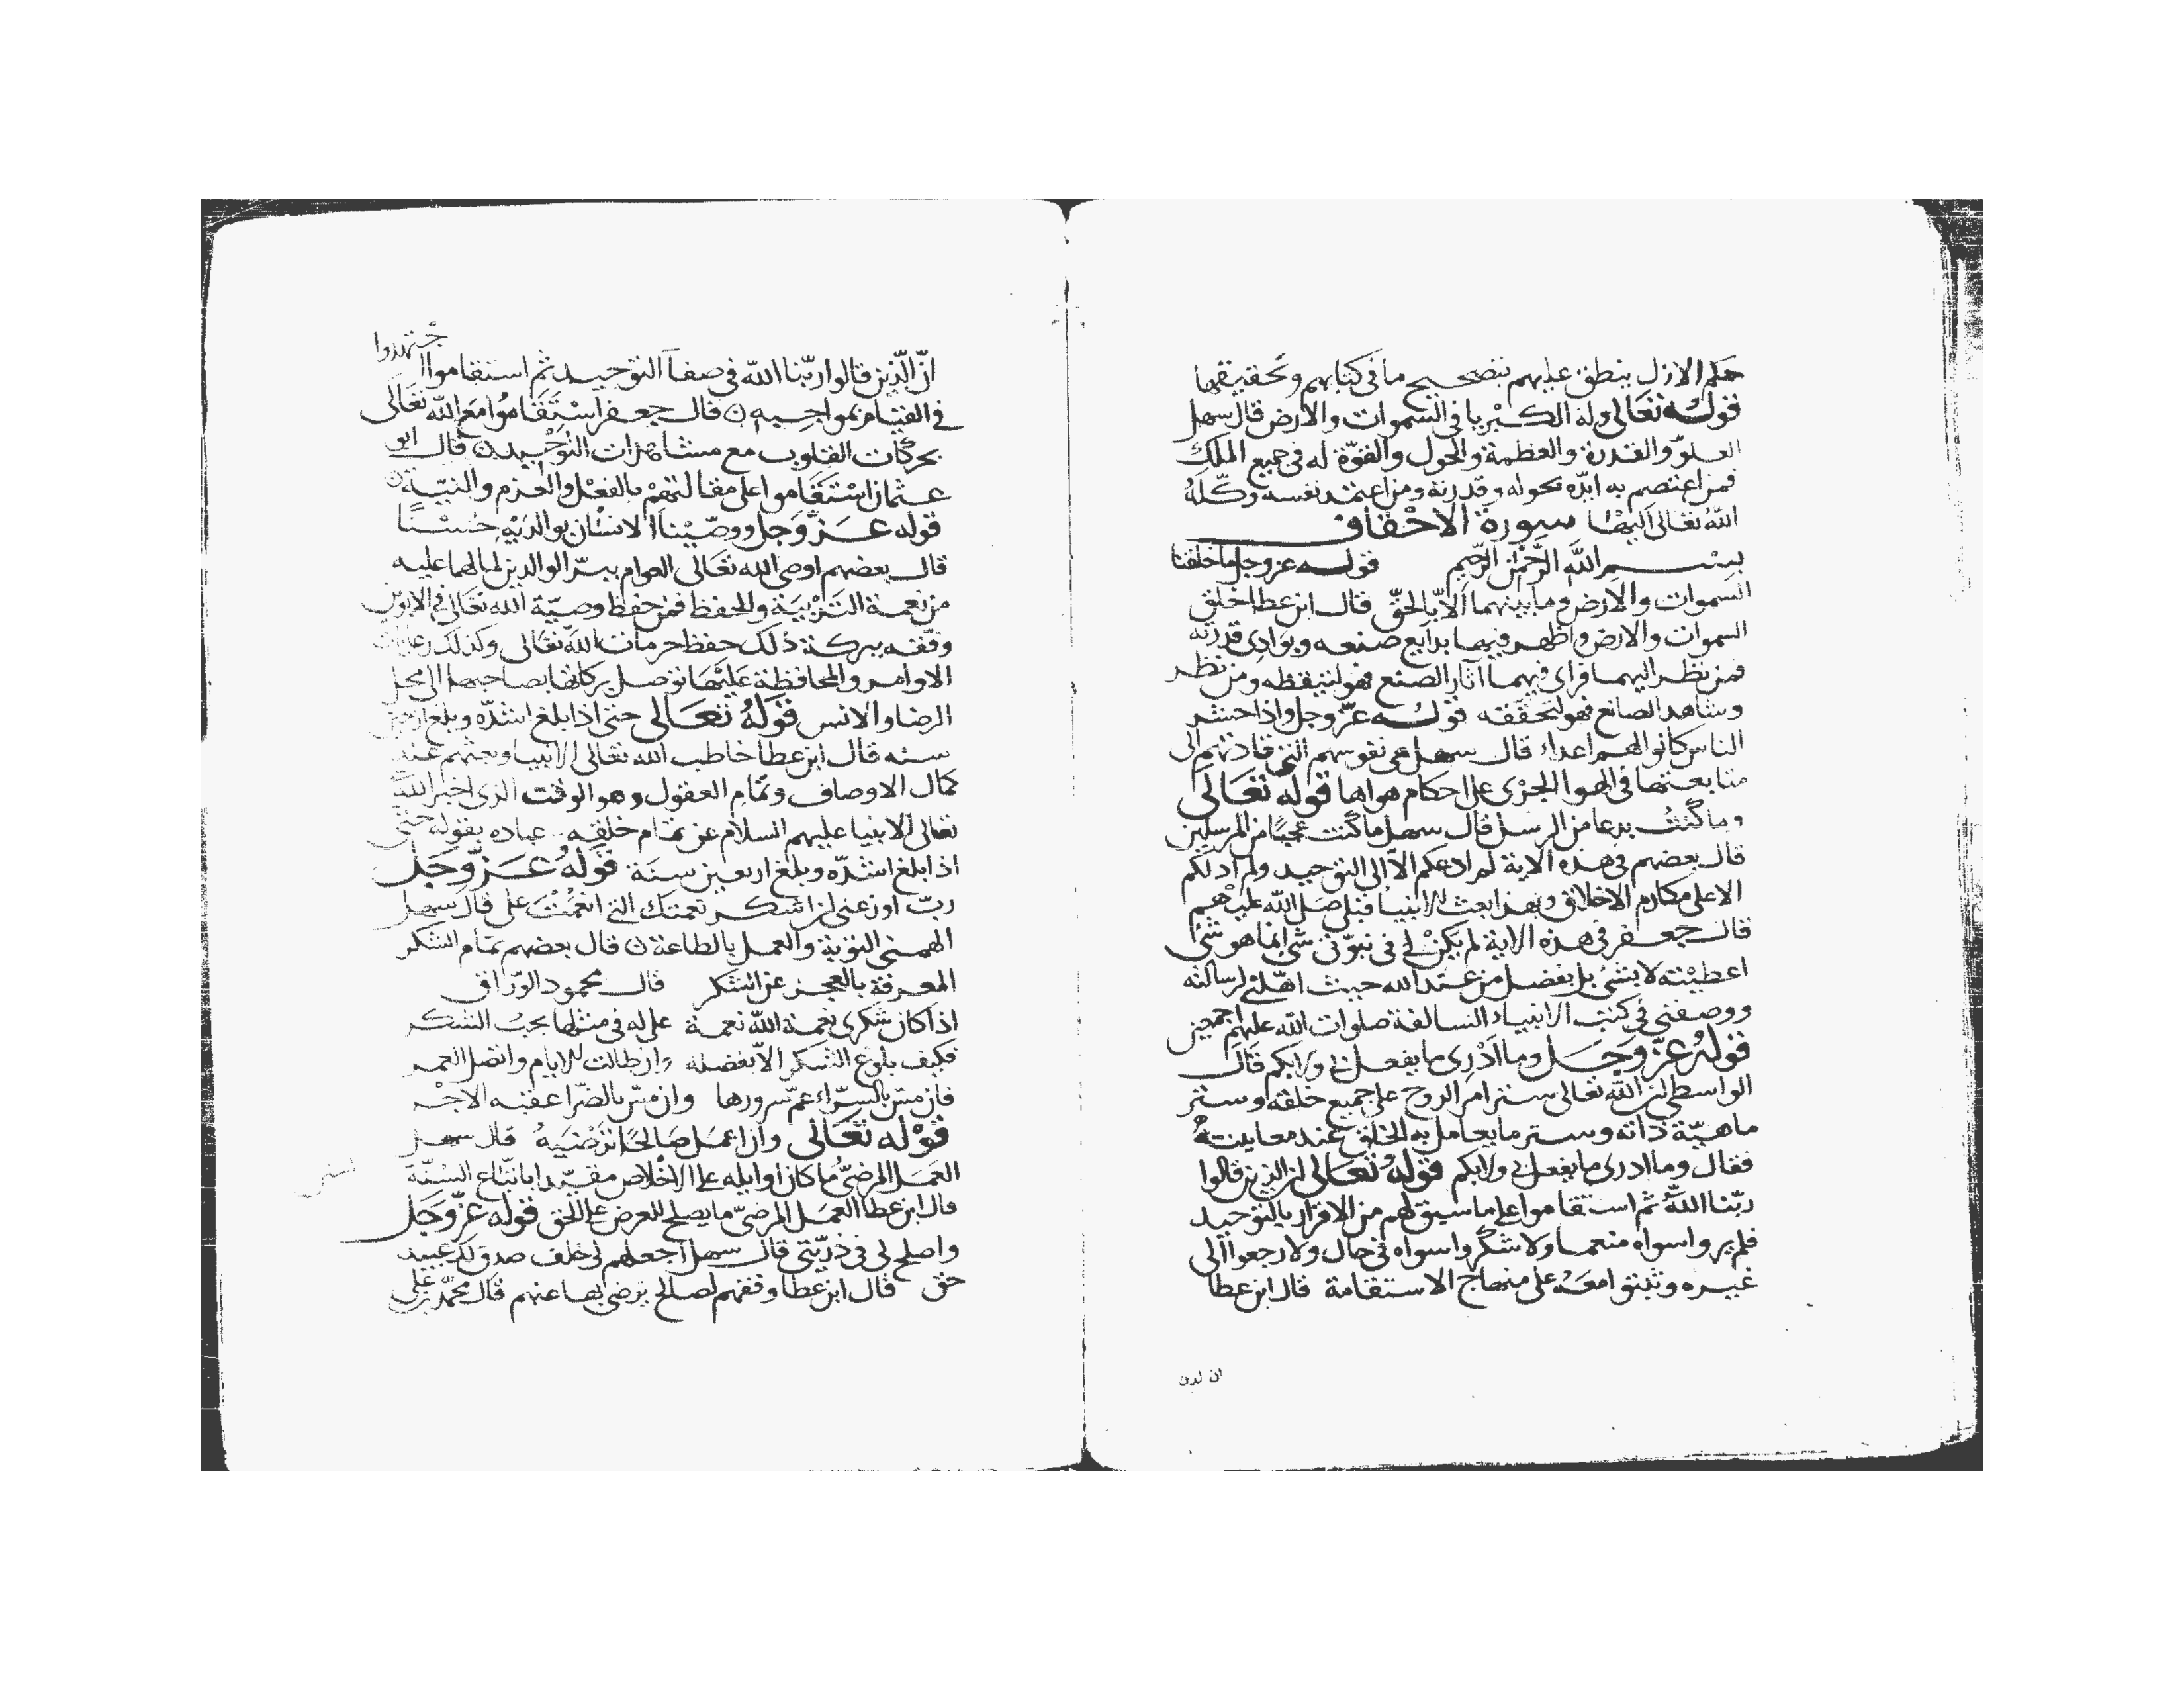 حكم الازل ينطق عليهم بتصحيح ما فى كتابهم وتحقيقها
قوله تعالى وله الكبريا فى السموات والارض قال سهل
العلوّ والقدرة والعظمة والحول والقوّة له فى جميع الملك
فمن اعتصم به ايّده بحوله وقدرته ومن اعتمد نفسه وكّله
الله تعالى اليها سورة الاحقاف
بسم الله الرحمن الرحيم قوله عز وجل ما خلقنا
السموات والارض وما بينهما الّا بالحقّ قال ابن عطا خلق
السموات والارض واظهر فيهما بدايع صنعه وبوادى قدرته
فمن نظر اليهما فراى فيهما آثار الصنع فهو لتيقظه ومن نظر
وشاهد الصانع فهو لتحققه قوله عزّ وجل واذا حشر
الناس كانوا لهم اعداء قال سهل هى نفوسهم التى قادتهم الى
متابعتها فى الهوا الجرى على احكام هواها قوله تعالى
وما كنت بدعا من الرسل قال سهل ما كنت عجبًا من المرسلين
قال بعضهم فى هذه الاية لم ادعكم الّا الى التوحيد ولم ادلكم
الا على مكارم الاخلاق وبهذا بعث الانبيا قبلى صلى الله عليهم
قال جعفر فى هذه الاية لم يكن لى فى نبوّتى شى انما هو شئ
اعطيته لا بشئ بل بفضل من عند الله حيث اهّلنى لرسالته
ووصفنى فى كتب الانبياء السالفة صلوات الله عليهم اجمعين
قوله عزّ وجل وما ادرى ما يفعل بى ولا بكم قال
الواسطى ان الله تعالى ستر امر الروح على جميع خلقه وستر
ماهيّة ذاته وستر ما يعامل به الخلق عند معاينته
فقال وما ادرى ما يفعل بى ولا بكم قوله تعالى ان الذين قالوا
ربّنا الله ثم استقاموا على ما سبق لهم من الاقرار بالتوحيد
فلم يروا سواه منعما ولا شكروا سواه فى حال ولا رجعوا الى
غيره وثبتوا معه على منهاج الاستقامة قال ابن عطا
انّ الّذين قالوا ربّنا الله فى صفآ التوحيد ثم استقاموا ا
جتهدوا
فى القيام بمواجبه قال جعفر استقاموا مع الله تعالى
بحركات القلوب مع مشاهدات التوحيد قال ابو
عثمان استقاموا على مقالتهم بالفعل والعزم والنيّة
قوله عزّ وجل ووصّينا الانسان بوالديه حسنًا
قال بعضهم اوصى الله تعالى العوام ببرّ الوالدين لما لهما عليه
من نعمة التربية والحفظ فمن حفظ وصيّة الله تعالى فى الابوين
وفّقه ببركة ذلك حفظ حرمات الله تعالى وكذلك رعايات
الاوامر والمحافظة عليها توصل بركاتها بصاحبها الى محل
الرضا والانس قوله تعالى حتى اذا بلغ اشدّه وبلغ اربعين
سنه قال ابن عطا خاطب الله تعالى الانبيا وبعثهم عند
كمال الاوصاف وتمام العقول وهو الوقت الذى اخبر الله
تعالى الانبيا عليهم السلام عن تمام خلقه عباده بقوله حتى
اذا بلغ اشدّه وبلغ اربعين سنة قوله عزّ وجل
ربّ اوزعنى ان اشكر نعمتك التى انعمت على قال سهل
الهمنى التوبة والعمل بالطاعة قال بعضهم تمام الشكر
المعرفة بالعجز عن الشكر قال محمود الورّاق
اذا كان شكرى نعمة الله نعمة على له فى مثلها يجب الشكر
فكيف بلوغ الشكر الا بفضله وان طالت الايام واتصل العمر
فان مسّ بالسرّاء عمّ سرورها وان مسّ بالضرّا عقبه الاجر
قوله تعالى وان اعمل صالحًا ترضيه قال سهل
العمل المرضىّ ما كان اوايله على الاخلاص مقيّدا باتّباع السنّة
قال ابن عطا العمل المرضىّ ما يصلح للعرض على الحق قوله عزّ وجل
واصلح لى فى ذرّيّتى قال سهل اجعلهم لى خلف صدق لك عبيد
حق قال ابن عطا وفقهم لصالح يرضى بها عنهم قال محمّد بن على